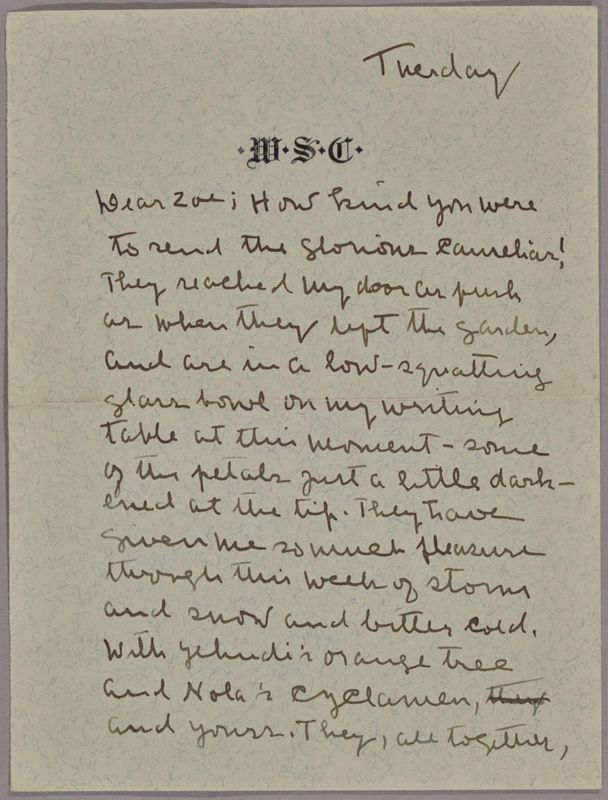 Tuesday
·W·S·C·
Dear Zoë; How kind you were
to send the glorious camelias!
They reached my door as fresh
as when they left the garden,
and are in a low-squatting
glass bowl on my writing
table at this moment - some
of the petals just a little dark-
ened at the tip. They have
given me so much pleasure
through this week of storm
and snow and bitter cold.
With Yehudi's orange tree
and Nola's cyclamen, they
and yours. They, all together,